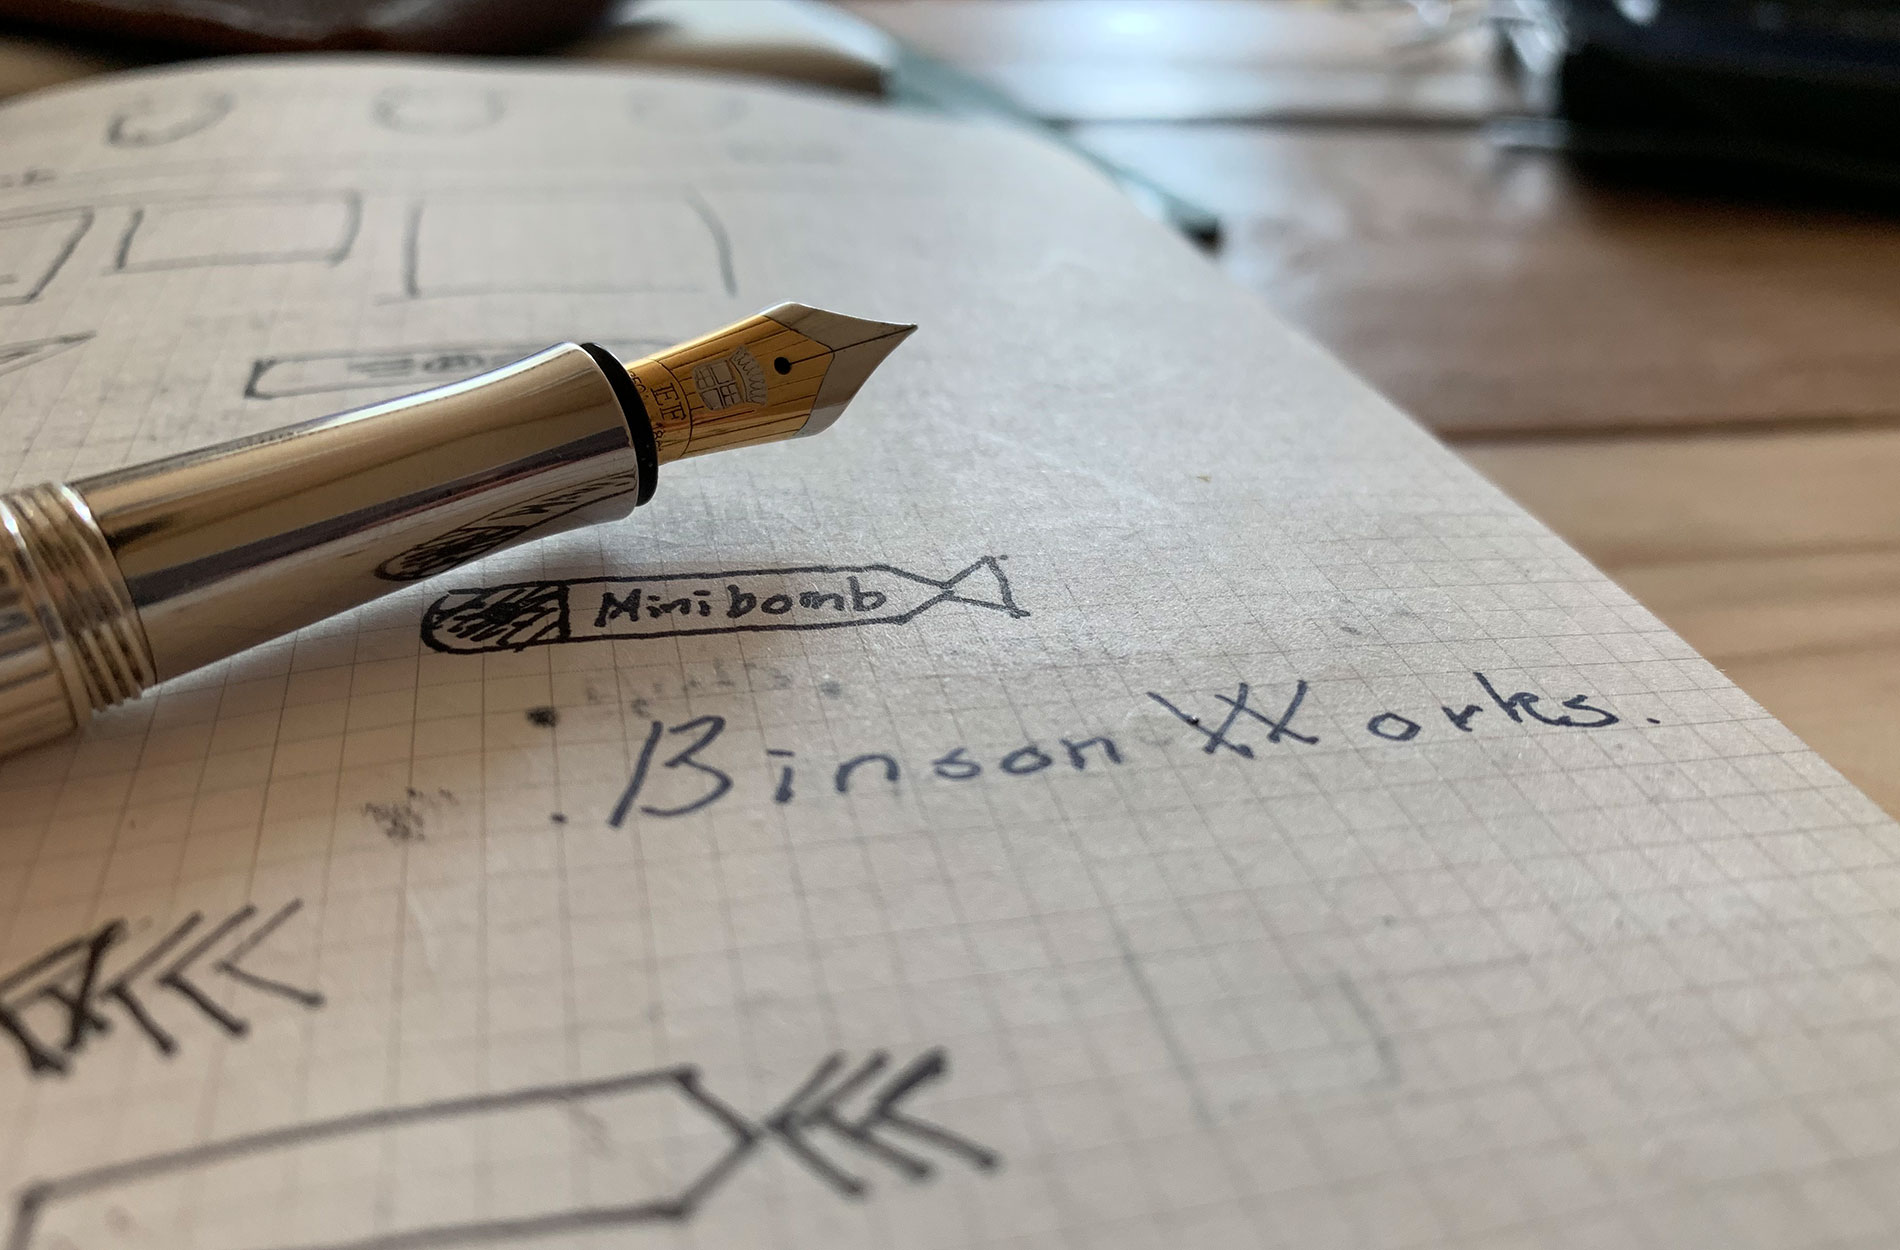 EF
Minibomb
.Binson Works.